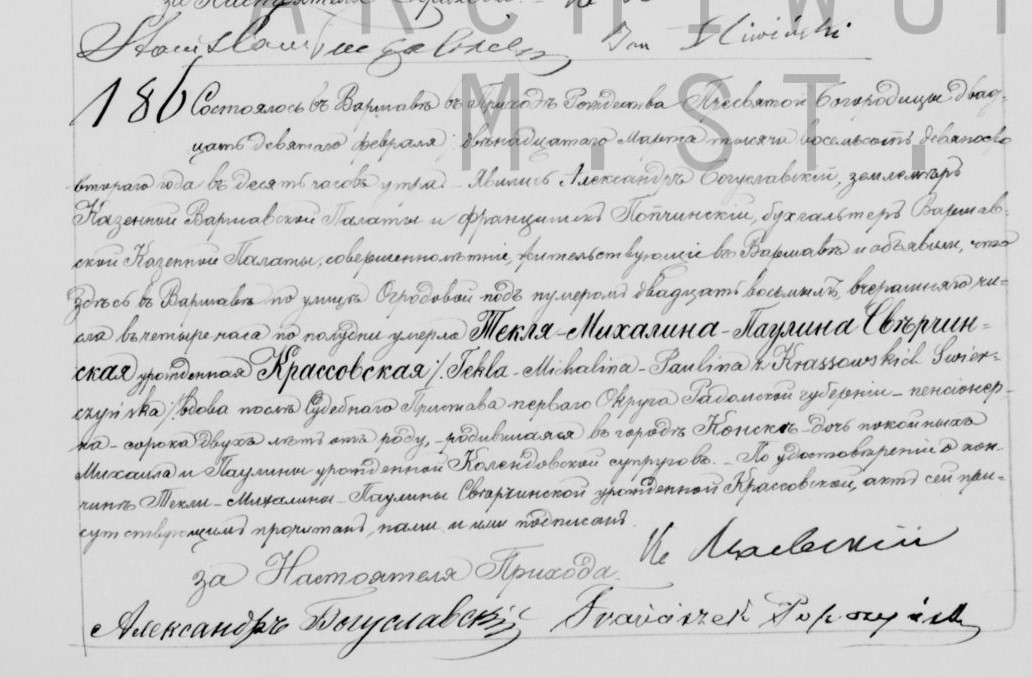 за Настоятеля Прихода
ARCHIWUM
Stanisław Jan Śliwiński
M. ST.
186 Состоялось въ Варшавѣ въ Приходѣ Рождества Пресвятой Богородицы двад-
цать девятаго февраля / двѣнадцатаго Марта тысяча восемьсотъ девяносто
втораго года въ десять часовъ утра. – Явились Александръ Богуславскій, землемѣръ
Казенной Варшавской Палаты и Францишекъ Попчинскій, бухгалтеръ Варшав-
ской Казенной Палаты, совершеннолѣтніе, жительствующіе въ Варшавѣ и объявили, что
здѣсь въ Варшавѣ по улицѣ Огродовой подъ нумеромъ двадцать восьмымъ, вчерашняго чи-
сла въ четыре часа по полудни умерла Текля-Михалина-Паулина Свѣрчин-
ская урожденная Крассовская /: Tekla-Michalina-Paulina z Krassowskich Swier-
czyńska :/ вдова послѣ Судебнаго Пристава перваго Округа Радомской губерніи – пенсіонер-
ка – сорока двухъ лѣтъ отъ роду, – родившаяся въ городѣ Конскъ – дочь покойныхъ
Михаила и Паулины урожденной Колендовской супруговъ. – По удостовѣреніи о кон-
чинѣ Текли-Михалины-Паулины Свѣрчинской урожденной Крассовской, актъ сей при-
сутствующимъ прочитанъ, нами и ими подписанъ.
за Настоятеля Прихода. Кс Маевскій
Александръ Богуславскій Franciszek Popczyński